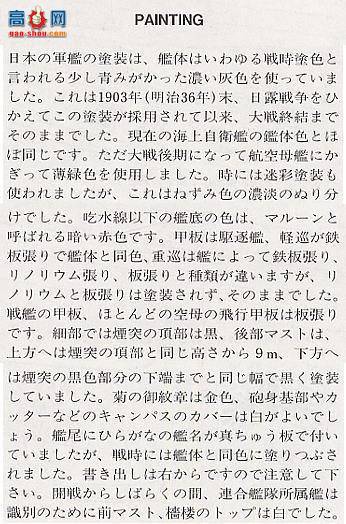 高手网
gao-shou.com
PAINTING
日本の軍艦の塗装は、艦体はいわゆる戦時塗色と
言われる少し青みがかった濃い灰色を使っていま
した。これは1903年(明治36年)末、日露戦争をひ
かえてこの塗装が採用されて以来、大戦終結まで
そのままでした。現在の海上自衛艦の艦体色とほ
ぼ同じです。ただ大戦後期になって航空母艦にか
ぎって薄緑色を使用しました。時には迷彩塗装も
使われましたが、これはねずみ色の濃淡のぬり分
けでした。吃水線以下の艦底の色は、マルーンと
呼ばれる暗い赤色です。甲板は駆逐艦、軽巡が鉄
板張りで艦体と同色、重巡は艦によって鉄板張り、
リノリウム張り、板張りと種類が違いますが、リ
ノリウムと板張りは塗装されず、そのままでした。
戦艦の甲板、ほとんどの空母の飛行甲板は板張り
です。細部では煙突の頂部は黒、後部マストは、
上方へは煙突の頂部と同じ高さから9m、下方へ
は煙突の黒色部分の下端までと同じ幅で黒く塗装
していました。菊の御紋章は金色、砲身基部やカ
ッターなどのキャンバスのカバーは白がよいでし
ょう。艦尾にひらがなの艦名が真ちゅう板で付い
ていましたが、戦時には艦体と同色に塗りつぶさ
れました。書き出しは右からですので注意して下
さい。開戦からしばらくの間、連合艦隊所属艦は
識別のために前マスト、檣楼のトップは白でした。